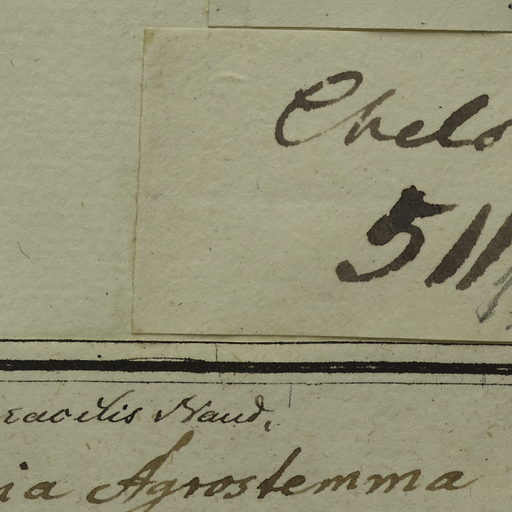 Chelo
511
racilis Naud.
ia Agrostemma